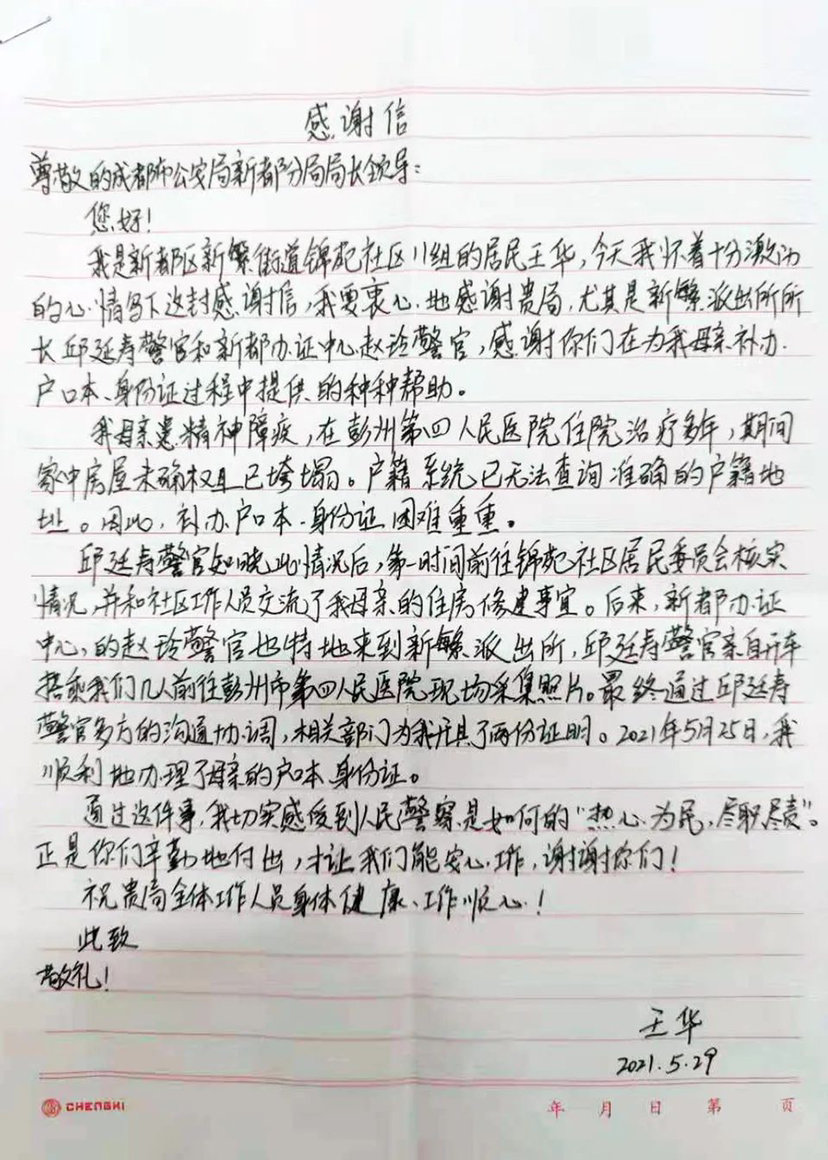 感谢信
尊敬的成都市公安局新都分局局长领导：
您好！
我是新都区新繁街道锦苑社区11组的居民王华，今天我怀着十分激动
的心情写下这封感谢信，我要衷心地感谢贵局，尤其是新繁派出所所
长邱延寿警官和新都办证中心赵玲警官，感谢你们在为我母亲补办
户口本、身份证过程中提供的种种帮助。
我母亲患精神障疾，在彭州第四人民医院住院治疗多年，期间
家中房屋未确权且已垮塌。户籍系统已无法查询准确的户籍地
址。因此，补办户口本、身份证困难重重。
邱延寿警官知晓此情况后，第一时间前往锦苑社区居民委员会核实
情况，并和社区工作人员交流了我母亲的住房修建事宜。后来，新都办证
中心的赵玲警官也特地来到新繁派出所，邱延寿警官亲自开车
搭乘我们几人前往彭州市第四人民医院现场采集照片。最终通过邱延寿
警官多方的沟通协调，相关部门为我开具了两份证明。2021年5月25日，我
顺利地办理了母亲的户口本、身份证。
通过这件事，我切实感受到人民警察是如何的“热心为民，尽职尽责”。
正是你们辛勤地付出，才让我们能安心工作，谢谢你们！
祝贵局全体工作人员身体健康、工作顺心！
此致
敬礼！
王华
2021.5.29
CHENGKI
年 月 日 第 页